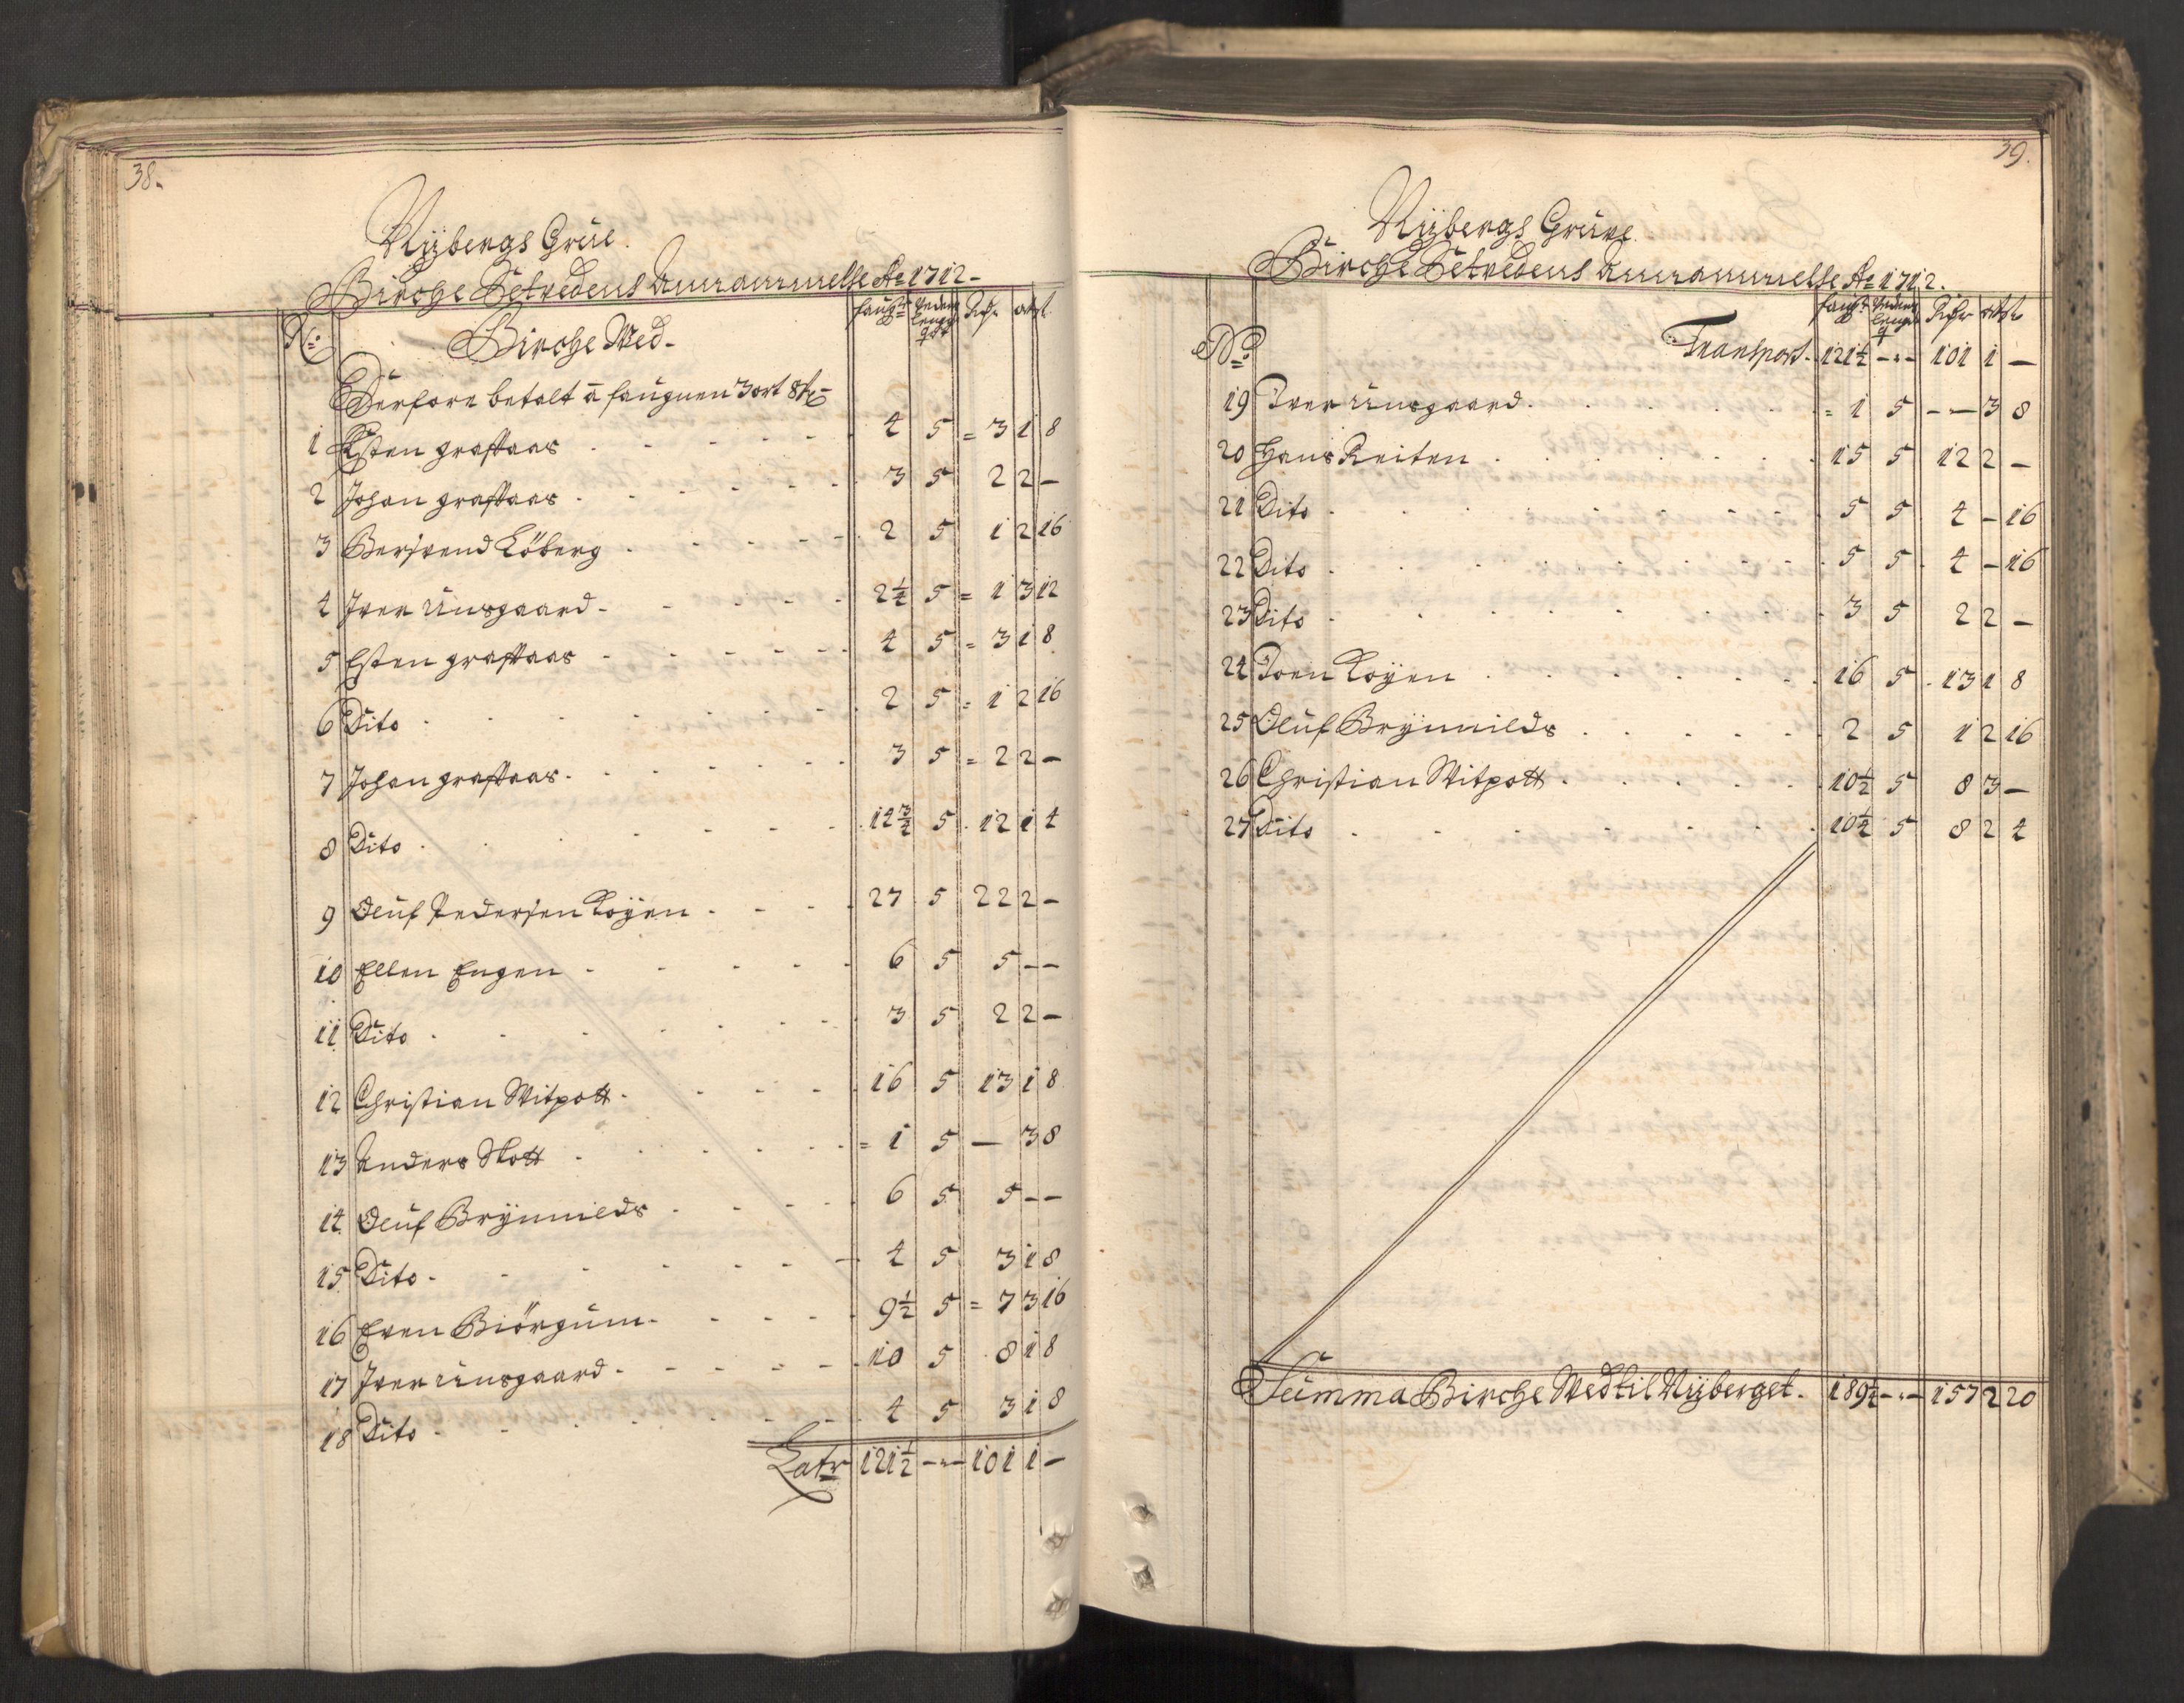 38.
Nÿbergs Grüe.
Birche Setvedens Annammelse Ao 1712-
No. Birche Wed- faugr Peders lengr qvt Rdr ort ß
Derfore betalt á faugnen 3 ort 8 ß
1 Esten graffaas 4 5 = 3 1 8
2 Johan graffaas 3 5 2 2 -
3 Bersvend Löberg 2 5 1 2 16
4 Iver Ünsgaard 2¼ 5 = 1 3 12
5 Esten graffaas 4 5 = 3 1 8
6 Dito 2 5 = 1 2 16
7 Johan graffaas 3 5 = 2 2 -
8 Dito 14¾ 5 12 1 4
9 Olüf Pedersen Koÿen 27 5 22 2 -
10 Ellen Engen 6 5 5 - -
11 Dito 3 5 2 2 -
12 Christian Witpott 16 5 13 1 8
13 Anders Skott = 1 5 - 3 8
14 Olüf Brÿnnilds 6 5 5 - -
15 Dito 4 5 3 1 8
16 Even Biörgüm 9½ 5 = 7 3 16
17 Iver Ünsgaard 10 5 8 1 8
18 Dito 4 5 3 1 8
Latr 121½ - " - 101 1 -
39.
Nÿbergs Grüve.
Birche Setvedens Annammelse Ao 1712.
faugr Peders lengr q Rdr ort ß
No Transport 121½ - " - 101 1 -
19 Iver Ünsgaard = 1 5 - - 3 8
20 Hans Reiten 15 5 12 2 -
21 Dito 5 5 4 - 16
22 Dito 5 5 4 - 16
23 Dito 3 5 2 2 -
24 Joen Koÿen 16 5 13 1 8
25 Olüf Brÿnnilds 2 5 1 2 16
26 Christian Witpott 10½ 5 8 3 -
27 Dito 10¼ 5 8 2 4
Summa Birche Wed til Nÿberget. 189¼ - " - 157 2 20